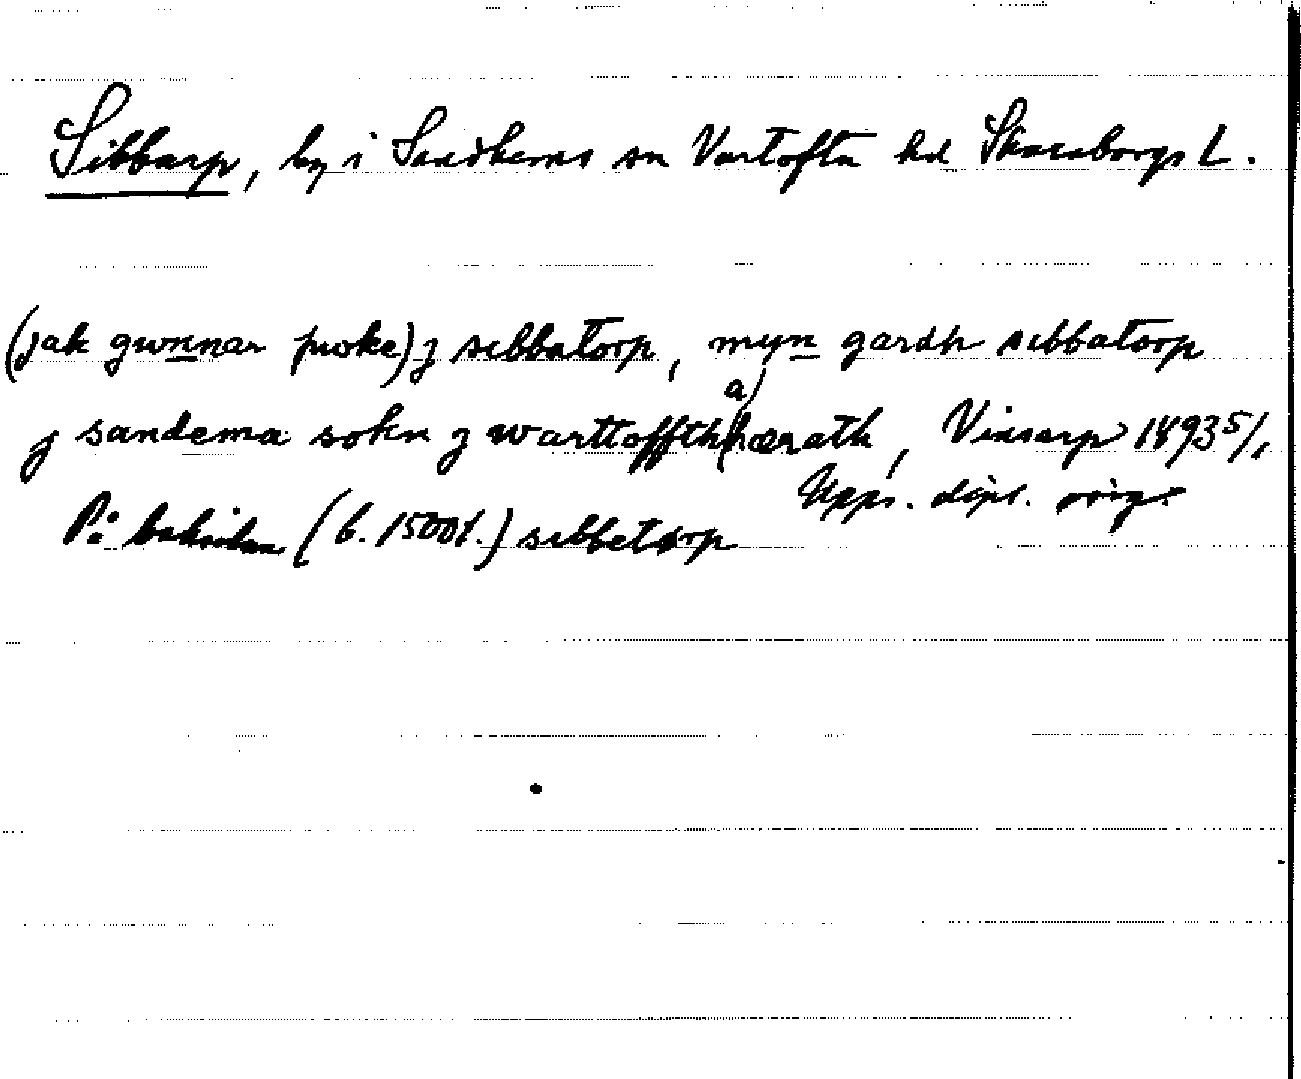 Sibbarp, by i Sandhems sn Vartofta hd Skaraborgs L.
(jak gwnnar puke) j sibbatorp, myn gardh sibbatorp
a)
j sandema sokn j warttoffth hærath, Vinsarp 1493 5/1
Upps. dipl. orig.
På baksidan (b. 1500t.) sibbetorp